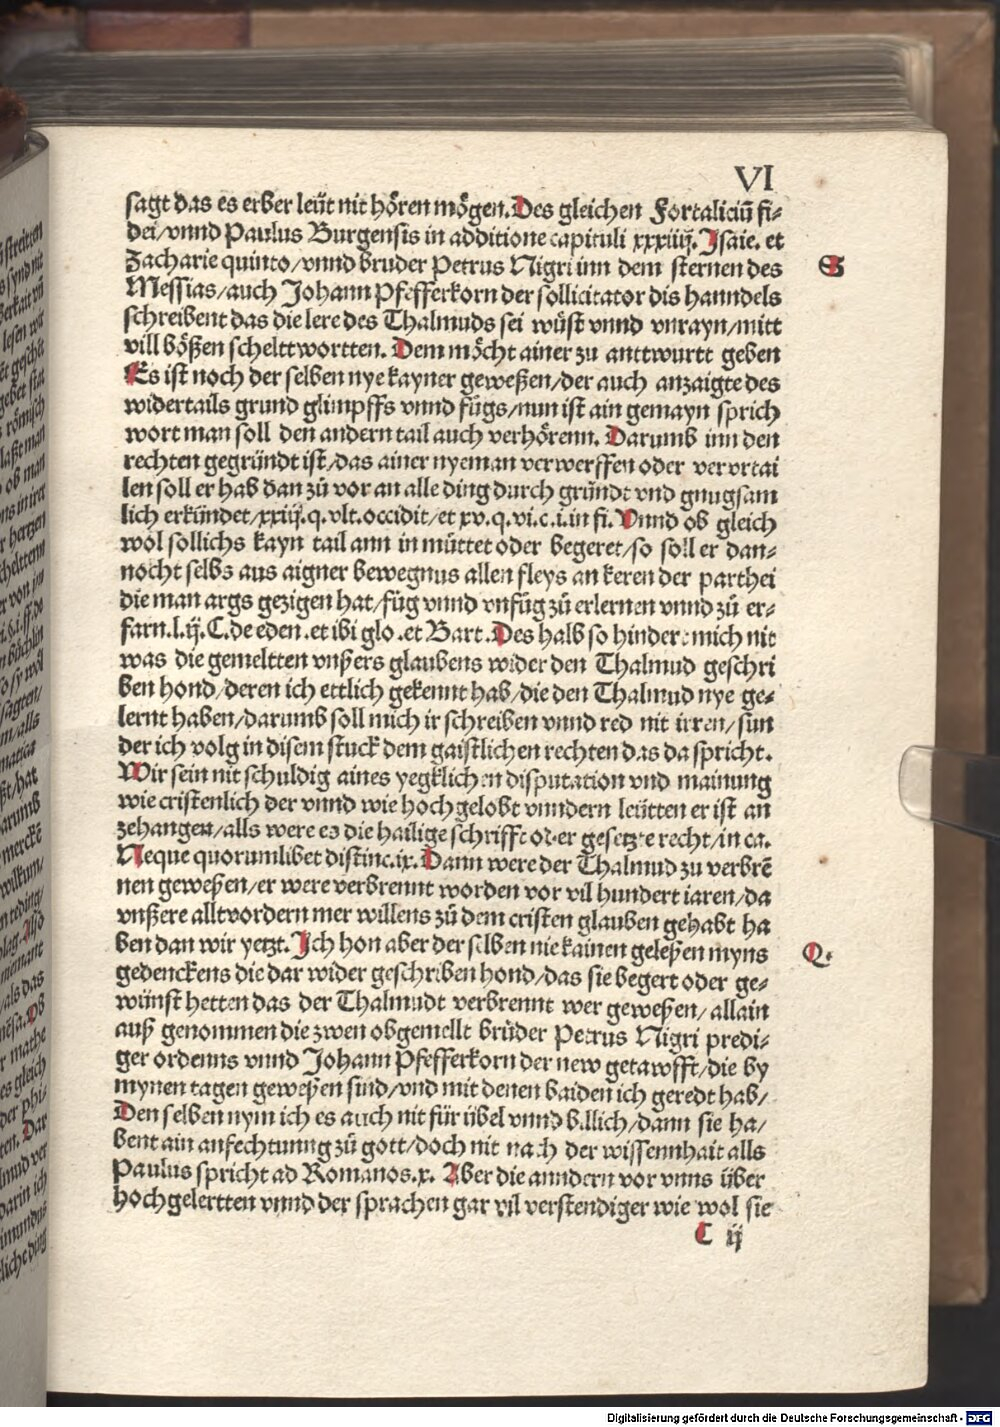 VI
sagt das es erber leüt nit hören mögen. Des gleichen Fortaliciū fi-
dei/vnnd Paulus Burgensis in additione capituli xxxiiij. Isaie. et
Zacharie quinto/vnnd bruder Petrus Nigri inn dem sternen des
S
Messias/auch Johann Pfefferkorn der sollicitator dis hanndels
schreibent das die lere des Thalmuds sei wüst vnnd vnrayn/mitt
vill bößen schelttwortten. Dem möcht ainer zu anttwurtt geben
Es ist noch der selben nye kayner geweßen/der auch anzaigte des
widertails grund glimpffs vnnd fügs/nun ist ain gemayn sprich
wort man soll den andern tail auch verhörenn. Darumb inn den
rechten gegründt ist/das ainer nyeman verwerffen oder vervrtai
len soll er hab dan zů vor an alle ding durch gründt vnd gnugsam
lich erkündet/xxiij.q.vlt.occidit/et xv.q.vi.c.i.in fi. Vnnd ob gleich
wol sollichs kayn tail ann in müttet oder begeret/so soll er dan-
nocht selbs aus aigner bewegnus allen fleys an keren der parthei
die man args gezigen hat/füg vnnd vnfüg zů erlernen vnnd zů er-
farn.l.ij.C.de eden.et ibi glo.et Bart. Des halb so hindert mich nit
was die gemeltten vnßers glaubens wider den Thalmud geschri
ben hond/deren ich ettlich gekennt hab/die den Thalmud nye ge-
lernt haben/darumb soll mich ir schreiben vnnd red nit irren/sun
der ich volg in disem stuck dem gaistlichen rechten das da spricht.
Wir sein nit schuldig aines yegklichen disputation vnd mainung
wie cristenlich der vnnd wie hoch gelobt vnndern leütten er ist an
zehangen/alls were es die hailige schrifft oder gesetzte recht/in ca.
Neque quorumlibet distinc.ix. Dann were der Thalmud zu verbrē
nen geweßen/er were verbrennt worden vor vil hundert iaren/da
vnßere alltvordern mer willens zů dem cristen glauben gehabt ha
ben dan wir yetzt. Ich hon aber der selben nie kainen geleßen myns
Q.
gedenckens die dar wider geschriben hond/das sie begert oder ge-
wünst hetten das der Thalmudt verbrennt wer geweßen/allain
auß genommen die zwen obgemellt brüder Petrus Nigri predi-
ger ordenns vnnd Johann Pfefferkorn der new getawfft/die by
mynen tagen geweßen sind/vnd mit denen baiden ich geredt hab/
Den selben nym ich es auch nit für übel vnnd billich/dann sie ha/
bent ain anfechtunng zů gott/doch nit nach der wissennhait alls
Paulus spricht ad Romanos.x. Aber die anndern vor vnns über
hochgelertten vnnd der sprachen gar vil verstendiger wie wol sie
C ij
Digitalisierung gefördert durch die Deutsche Forschungsgemeinschaft - DFG